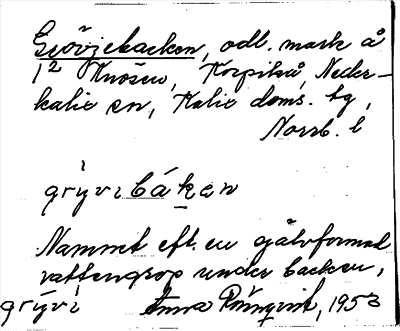 Grövjebacken, odl. mark å
1² Knösen, Korpikå, Neder-
kalix sn, Kalix doms. tg,
Norrb. l
grỳvibákən
Namnet eft. en gälvformad
vattengrop under backen,
grỳvi Anna Rönnqvist, 1953